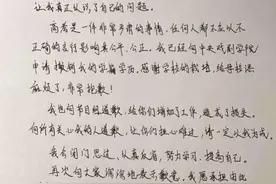 让我真正认识了自己的问题。
高考是一件非常严肃的事情，任何人都不应以不
正确的言行影响其公平、公正。我已经向中央戏剧学院
申请撤销我的学籍学历。感谢学校的教培，给母校添
麻烦了，非常抱歉！
我也向节目组道歉，给你们增加了工作，造成了损失。
向所有关心我的人道歉，让你们担心难过，请一定以我为戒。
我会闭门思过，认真反省，努力学习，提高自己。
再次向大家深深地表示歉意，我愿承担由此